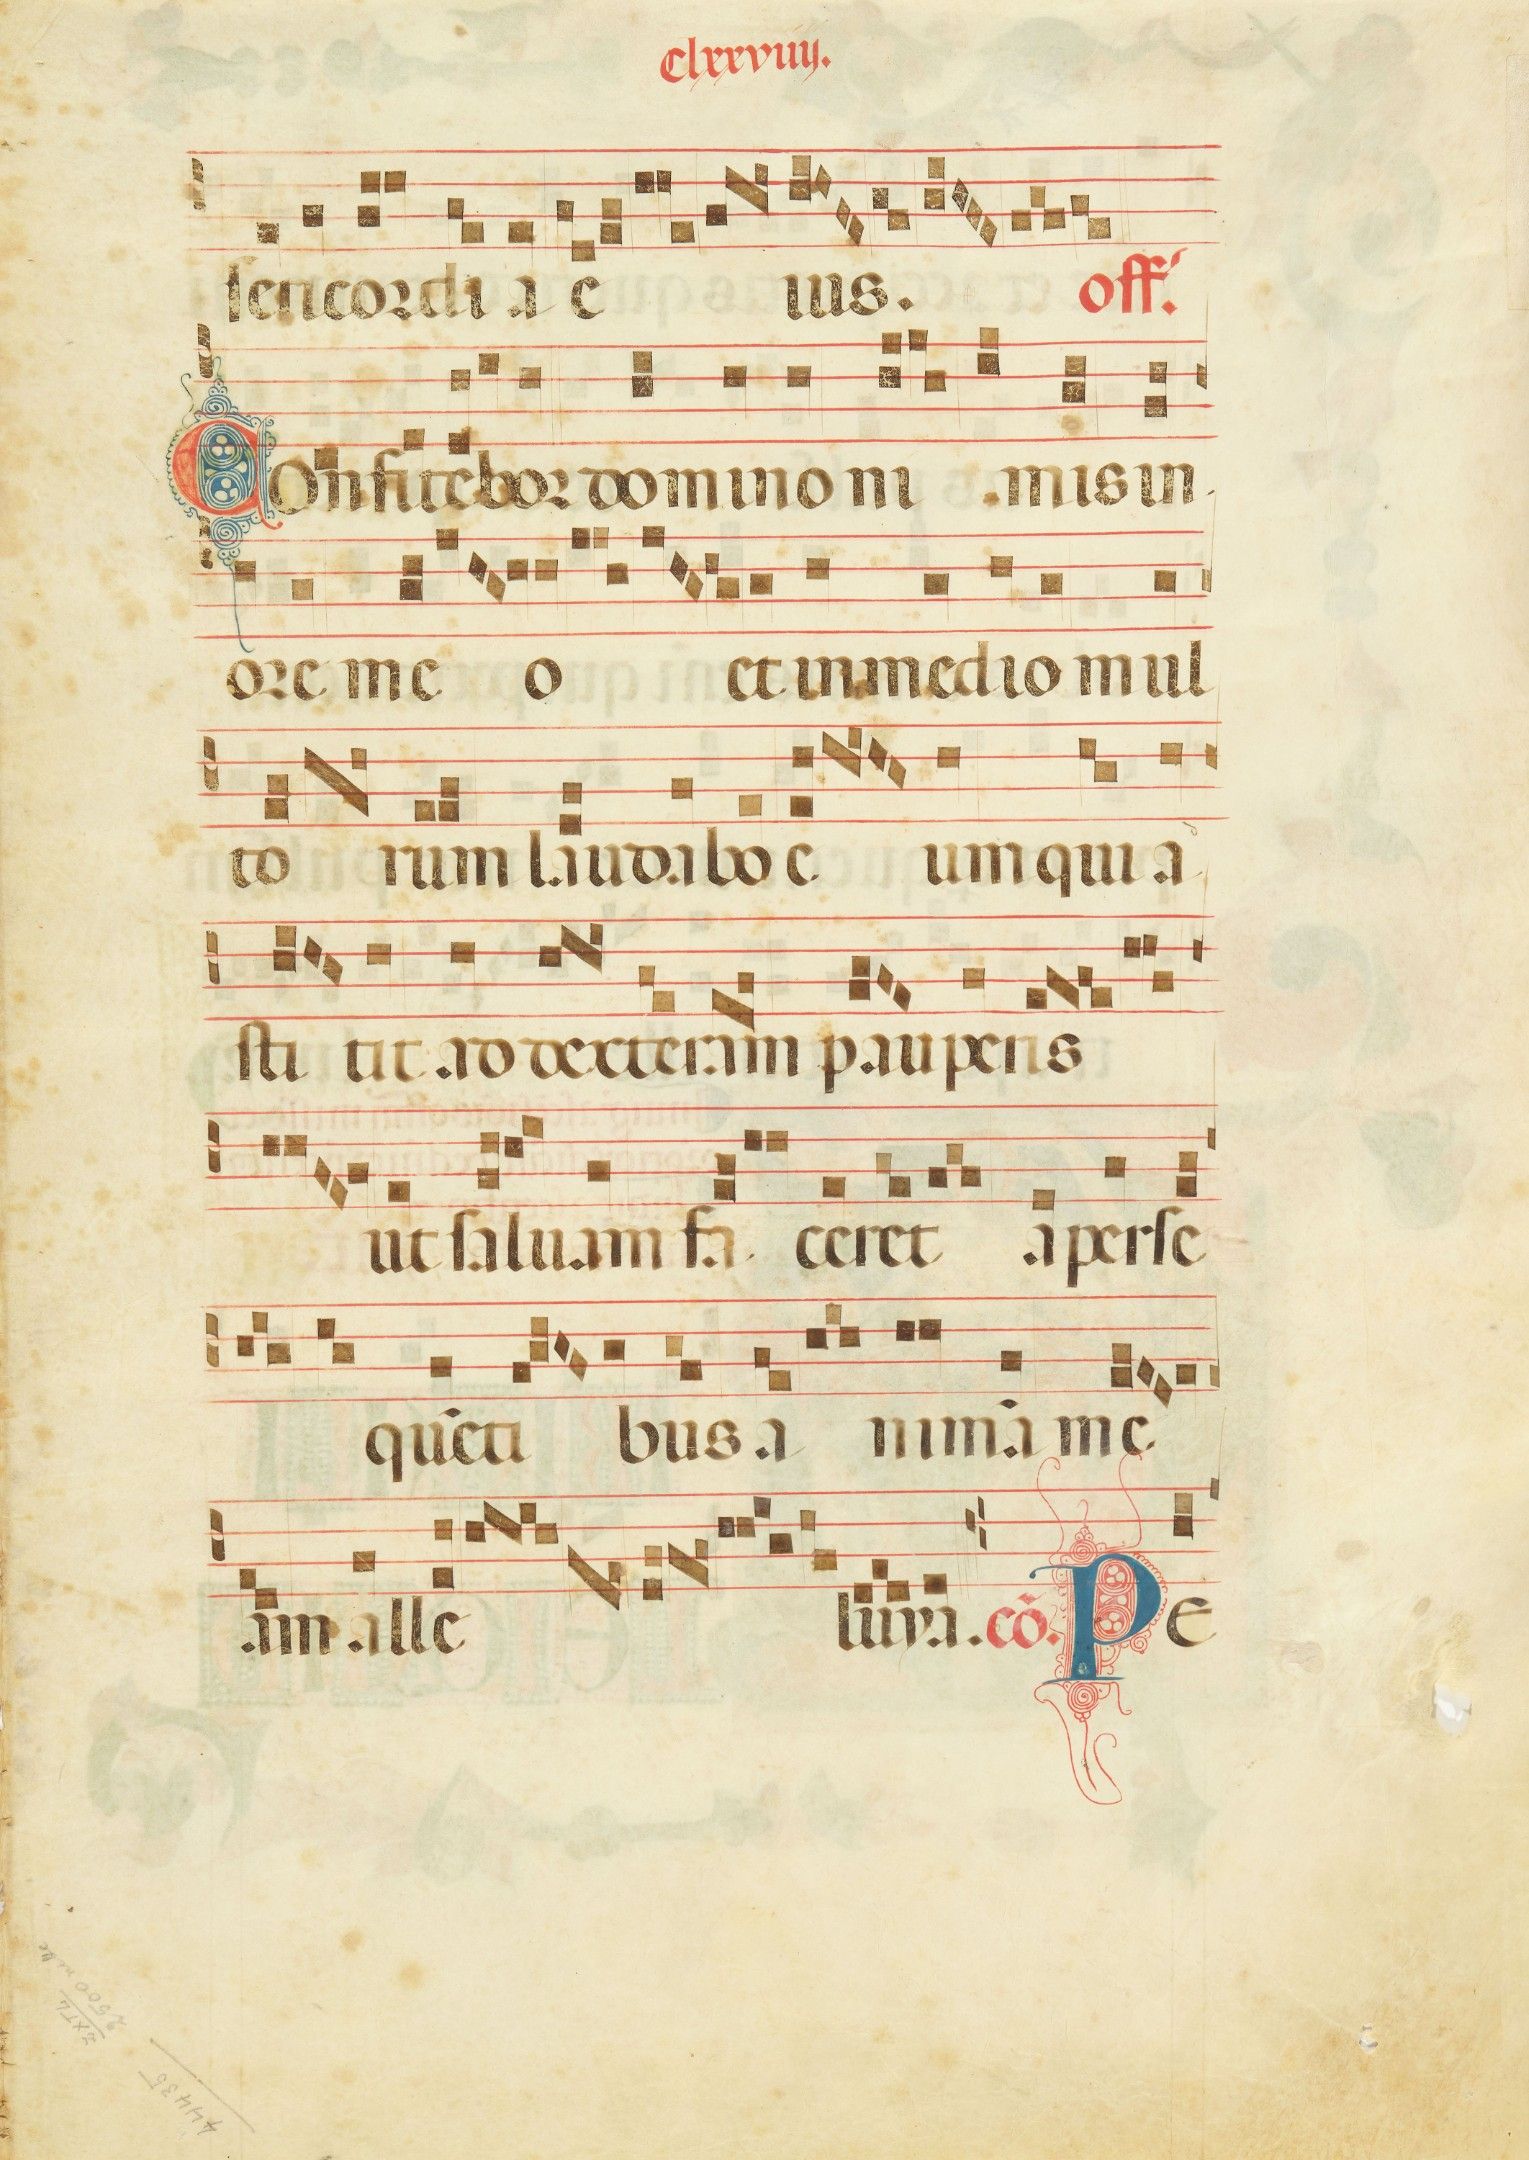 clxxviiij.
sericordia eius. off.
Confitebor domino nimis in
ore meo et in medio mul
torum laudabo eum qui a
stitit ad dexteram pauperis
ut saluam faceret a perse
quẽtibus animã me
am alleluya. cõ. Pe
44435